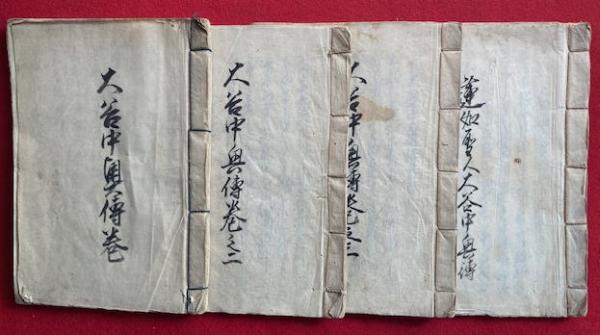 大谷中興傳巻
大谷中興傳巻之二
大谷中興傳巻之三
蓮如聖人大谷中興傳